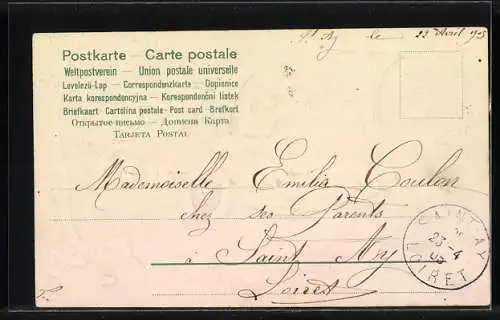 St Ay le 22 Avril 1905
Postkarte — Carte postale
Weltpostverein — Union postale universelle
Levelezö-Lap — Correspondenzkarte — Dopisnice
Karta korespondencyjna — Korespondenční lístek
Briefkaart - Cartolina postale - Post card - Brefkort
Открытое письмо — Дописна Карта
TARJETA POSTAL
Mademoiselle Emilia Coulon
chez ses Parents
à Saint Ay
Loiret
SAINT-AY
23-4
05
LOIRET